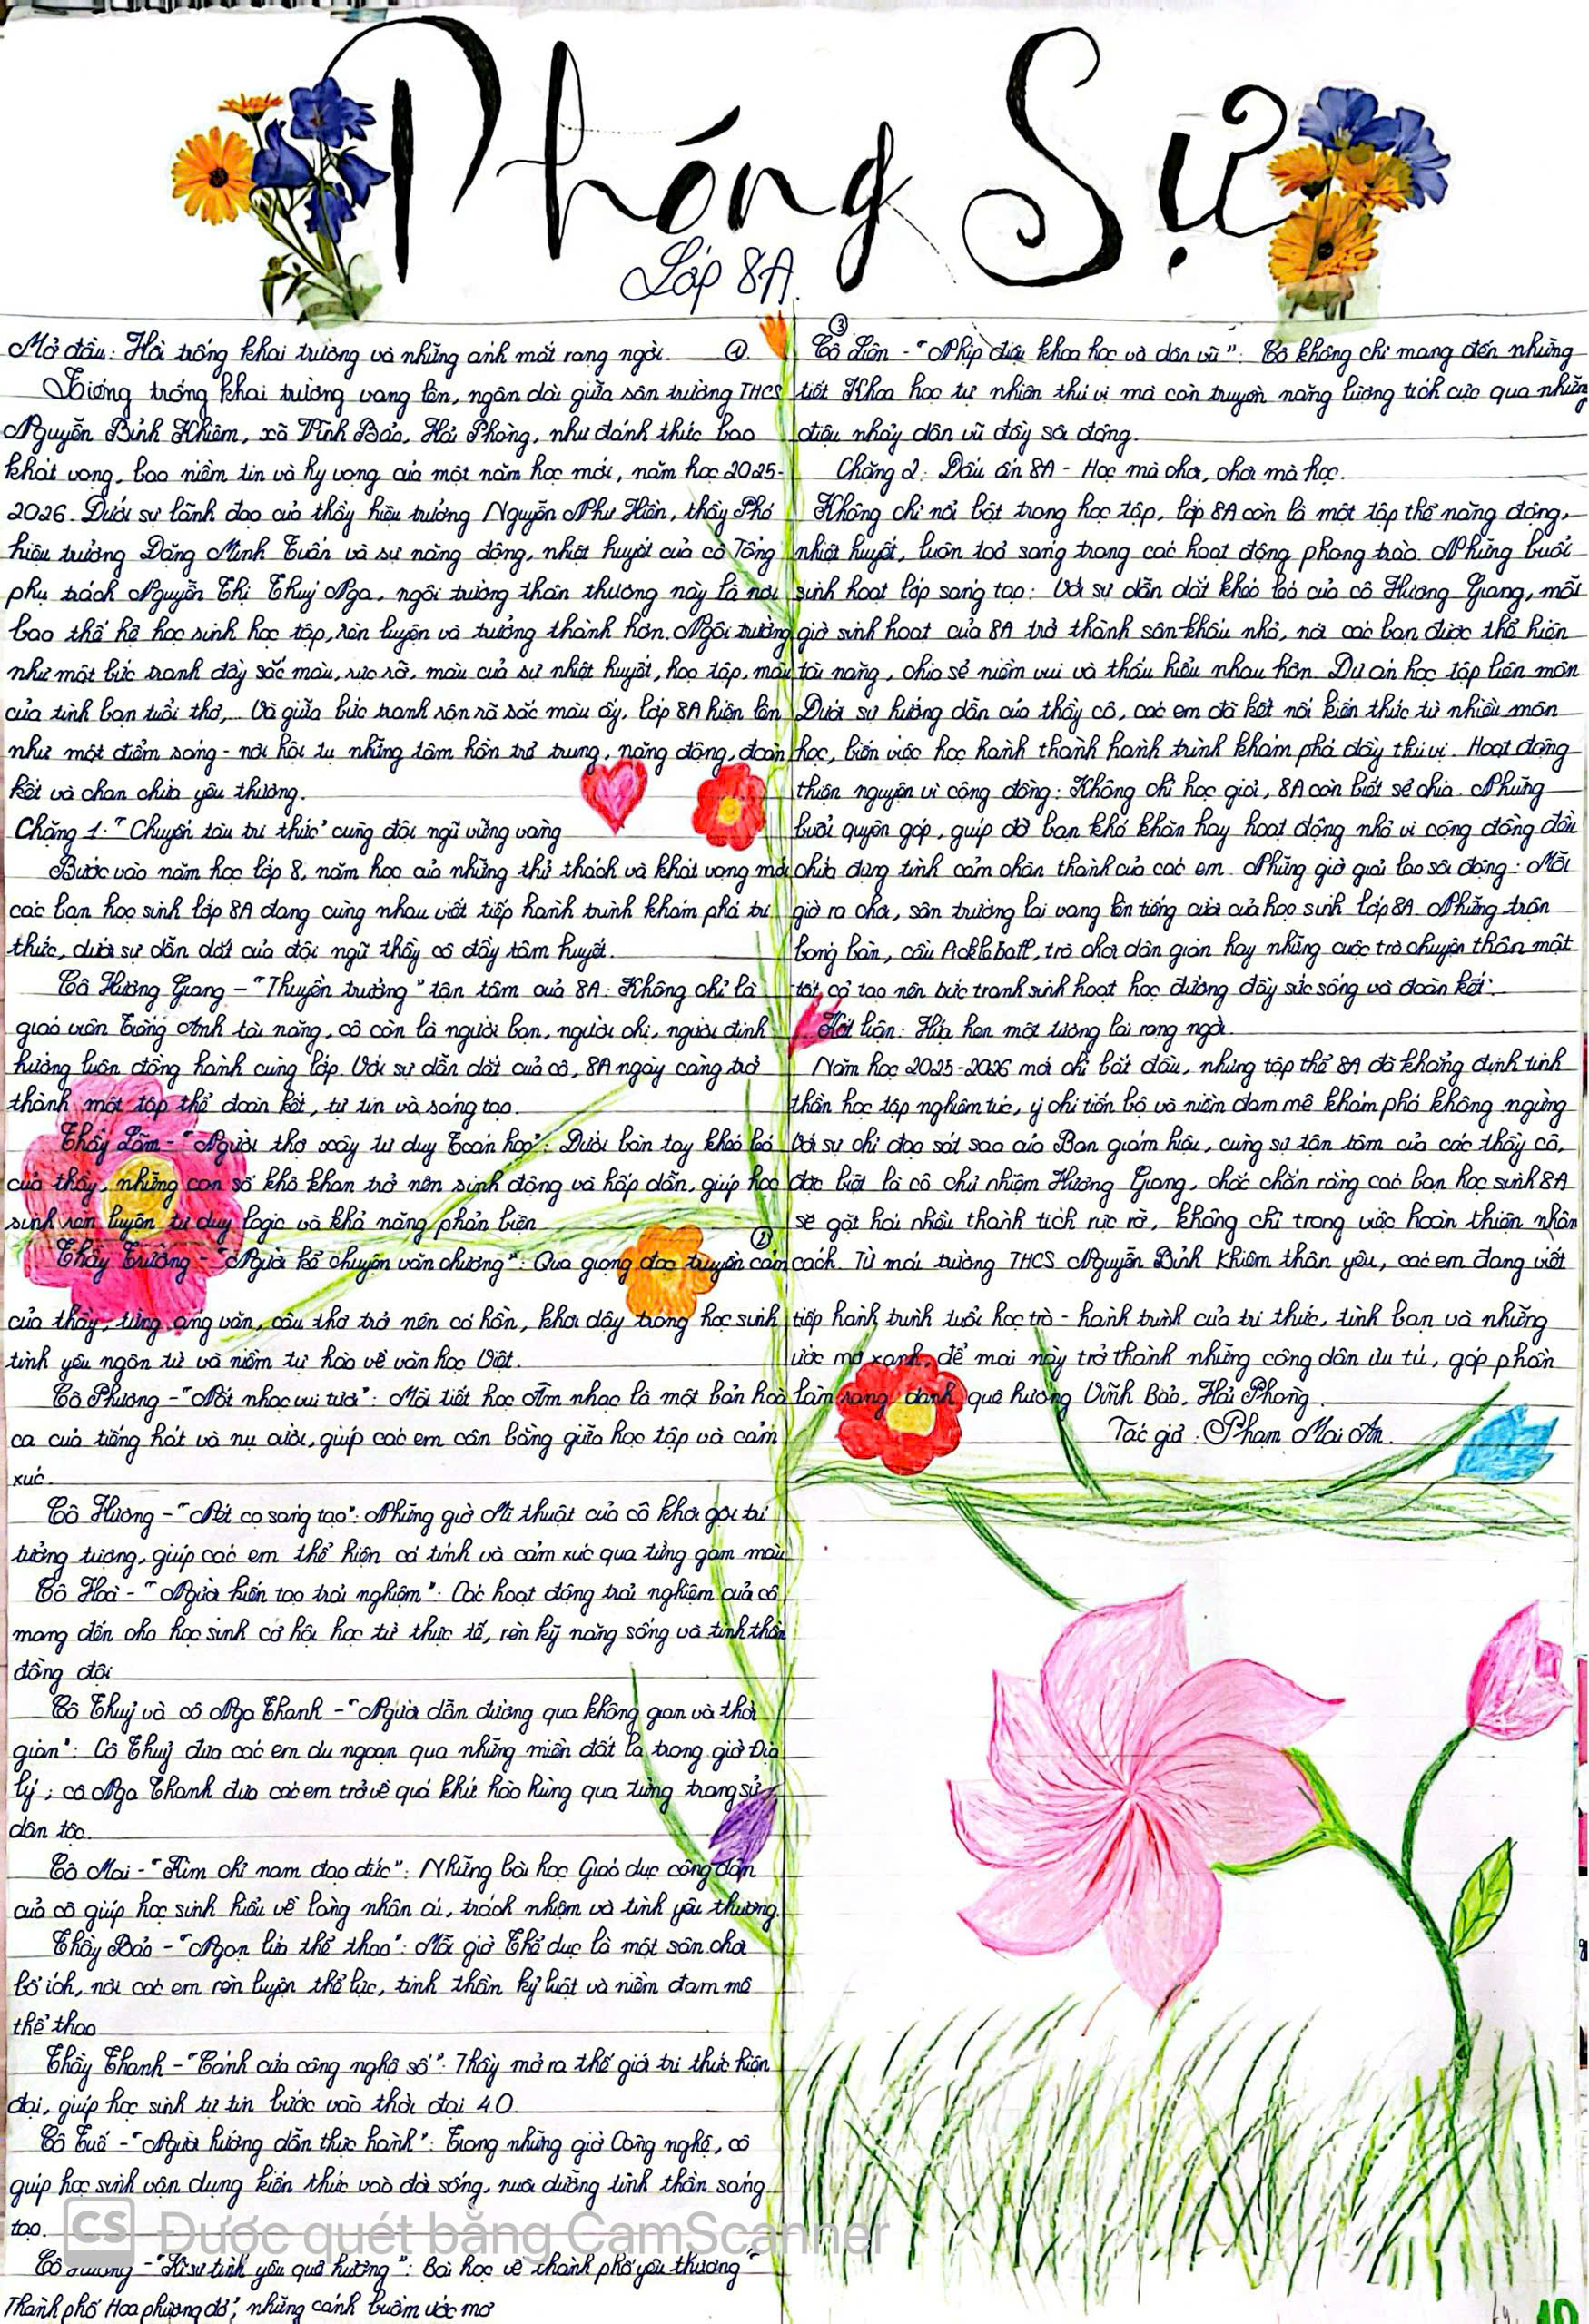 Phóng Sự
Lớp 8A.
Mở đầu: Hồi trống khai trường và những ánh mắt rạng ngời. ①
Tiếng trống khai trường vang lên, ngân dài giữa sân trường THCS
Nguyễn Bỉnh Khiêm, xã Vĩnh Bảo, Hải Phòng, như đánh thức bao
khát vọng, bao niềm tin và hy vọng của một năm học mới, năm học 2025-
2026. Dưới sự lãnh đạo của thầy hiệu trưởng Nguyễn Như Hiền, thầy Phó
hiệu trưởng Đặng Minh Tuấn và sự năng động, nhiệt huyết của cô Tổng
phụ trách Nguyễn Thị Thuý Nga, ngôi trường thân thương này là nơi
bao thế hệ học sinh học tập, rèn luyện và trưởng thành hơn. Ngôi trường
như một bức tranh đầy sắc màu, rực rỡ, màu của sự nhiệt huyết, học tập, màu
của tình bạn tuổi thơ,... Và giữa bức tranh rộn rã sắc màu ấy, lớp 8A hiện lên
như một điểm sáng - nơi hội tụ những tâm hồn trẻ trung, năng động, đoàn
kết và chan chứa yêu thương.
Chặng 1: "Chuyến tàu tri thức" cùng đội ngũ vững vàng
Bước vào năm học lớp 8, năm học của những thử thách và khát vọng mới
các bạn học sinh lớp 8A đang cùng nhau viết tiếp hành trình khám phá tri
thức, dưới sự dẫn dắt của đội ngũ thầy cô đầy tâm huyết.
Cô Hương Giang - "Thuyền trưởng" tận tâm của 8A: Không chỉ là
giáo viên Tiếng Anh tài năng, cô còn là người bạn, người chị, người định
hướng luôn đồng hành cùng lớp. Với sự dẫn dắt của cô, 8A ngày càng trở
thành một tập thể đoàn kết, tự tin và sáng tạo.
Thầy Lâm - "Người thợ xây tư duy Toán học": Dưới bàn tay khéo léo
của thầy, những con số khô khan trở nên sinh động và hấp dẫn, giúp học
sinh rèn luyện tư duy logic và khả năng phản biện
Thầy Trường - "Người kể chuyện văn chương": Qua giọng đọc truyền cảm ②
của thầy, từng áng văn, câu thơ trở nên có hồn, khơi dậy trong học sinh
tình yêu ngôn từ và niềm tự hào về văn học Việt.
Cô Phương - "Nốt nhạc vui tươi": Mỗi tiết học Âm nhạc là một bản hoà
ca của tiếng hát và nụ cười, giúp các em cân bằng giữa học tập và cảm
xúc.
Cô Hương - "Nét cọ sáng tạo": Những giờ Mĩ thuật của cô khơi gợi trí
tưởng tượng, giúp các em thể hiện cá tính và cảm xúc qua từng gam màu
Cô Hoà - "Người kiến tạo trải nghiệm": Các hoạt động trải nghiệm của cô
mang đến cho học sinh cơ hội học từ thực tế, rèn kỹ năng sống và tinh thần
đồng đội
Cô Thuỷ và cô Nga Thanh - "Người dẫn đường qua không gian và thời
gian": Cô Thuỷ đưa các em du ngoạn qua những miền đất lạ trong giờ Địa
lý; cô Nga Thanh đưa các em trở về quá khứ hào hùng qua từng trang sử
dân tộc.
Cô Mai - "Kim chỉ nam đạo đức": Những bài học Giáo dục công dân
của cô giúp học sinh hiểu về lòng nhân ái, trách nhiệm và tình yêu thương.
Thầy Bảo - "Ngọn lửa thể thao": Mỗi giờ Thể dục là một sân chơi
bổ ích, nơi các em rèn luyện thể lực, tinh thần kỷ luật và niềm đam mê
thể thao
Thầy Thanh - "Cánh cửa công nghệ số": Thầy mở ra thế giới tri thức hiện
đại, giúp học sinh tự tin bước vào thời đại 4.0.
Cô Tuế - "Người hướng dẫn thực hành": Trong những giờ Công nghệ, cô
giúp học sinh vận dụng kiến thức vào đời sống, nuôi dưỡng tinh thần sáng
tạo.
Cô - "Kí sự tình yêu quê hương": Bài học về thành phố yêu thương "
Thành phố Hoa phượng đỏ", những cánh buồm ước mơ
③
Cô Liên - "Nhịp điệu khoa học và dân vũ": Cô không chỉ mang đến những
tiết Khoa học tự nhiên thú vị mà còn truyền năng lượng tích cực qua những
điệu nhảy dân vũ đầy sôi động.
Chặng 2: Dấu ấn 8A - Học mà chơi, chơi mà học.
Không chỉ nổi bật trong học tập, lớp 8A còn là một tập thể năng động,
nhiệt huyết, luôn toả sáng trong các hoạt động phong trào. Những buổi
sinh hoạt lớp sáng tạo: Với sự dẫn dắt khéo léo của cô Hương Giang, mỗi
giờ sinh hoạt của 8A trở thành sân khấu nhỏ, nơi các bạn được thể hiện
tài năng, chia sẻ niềm vui và thấu hiểu nhau hơn. Dự án học tập liên môn
Dưới sự hướng dẫn của thầy cô, các em đã kết nối kiến thức từ nhiều môn
học, biến việc học hành thành hành trình khám phá đầy thú vị. Hoạt động
thiện nguyện vì cộng đồng: Không chỉ học giỏi, 8A còn biết sẻ chia. Những
buổi quyên góp, giúp đỡ bạn khó khăn hay hoạt động nhỏ vì cộng đồng đều
chứa đựng tình cảm chân thành của các em. Những giờ giải lao sôi động: Mỗi
giờ ra chơi, sân trường lại vang lên tiếng cười của học sinh lớp 8A. Những trận
bóng bàn, cầu Pickleball, trò chơi dân gian hay những cuộc trò chuyện thân mật
tất cả tạo nên bức tranh sinh hoạt học đường đầy sức sống và đoàn kết.
Kết luận: Hứa hẹn một tương lai rạng ngời.
Năm học 2025-2026 mới chỉ bắt đầu, nhưng tập thể 8A đã khẳng định tinh
thần học tập nghiêm túc, ý chí tiến bộ và niềm đam mê khám phá không ngừng
Với sự chỉ đạo sát sao của Ban giám hiệu, cùng sự tận tâm của các thầy cô,
đặc biệt là cô chủ nhiệm Hương Giang, chắc chắn rằng các bạn học sinh 8A
sẽ gặt hái nhiều thành tích rực rỡ, không chỉ trong việc hoàn thiện nhân
cách. Từ mái trường THCS Nguyễn Bỉnh Khiêm thân yêu, các em đang viết
tiếp hành trình tuổi học trò - hành trình của tri thức, tình bạn và những
ước mơ xanh, để mai này trở thành những công dân ưu tú, góp phần
làm rạng danh quê hương Vĩnh Bảo, Hải Phòng.
Tác giả: Phạm Mai An.
CS Được quét bằng CamScanner